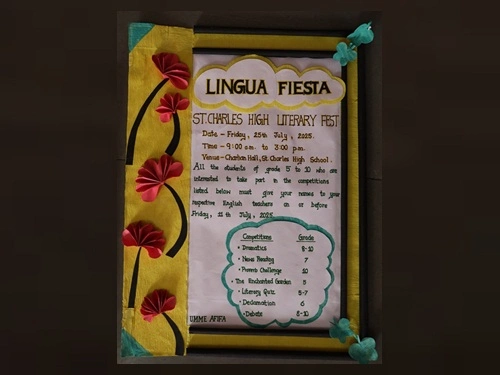 LINGUA FIESTA
ST. CHARLES HIGH LITERARY FEST
Date - Friday, 25th July, 2025.
Time - 9:00 a.m. to 3:00 p.m.
Venue - Charban Hall, St. Charles High School.
All the students of grade 5 to 10 who are
interested to take part in the competitions
listed below must give your names to your
respective English teachers on or before
Friday, 11 th July, 2025
Competitions Grade
• Dramatics 8-10
• News Reading 7
• Proverb Challenge 10
• The Enchanted Garden 5
• Literary Quiz 5-7
• Declamation 6
• Debate 8-10
UMME AFIFA